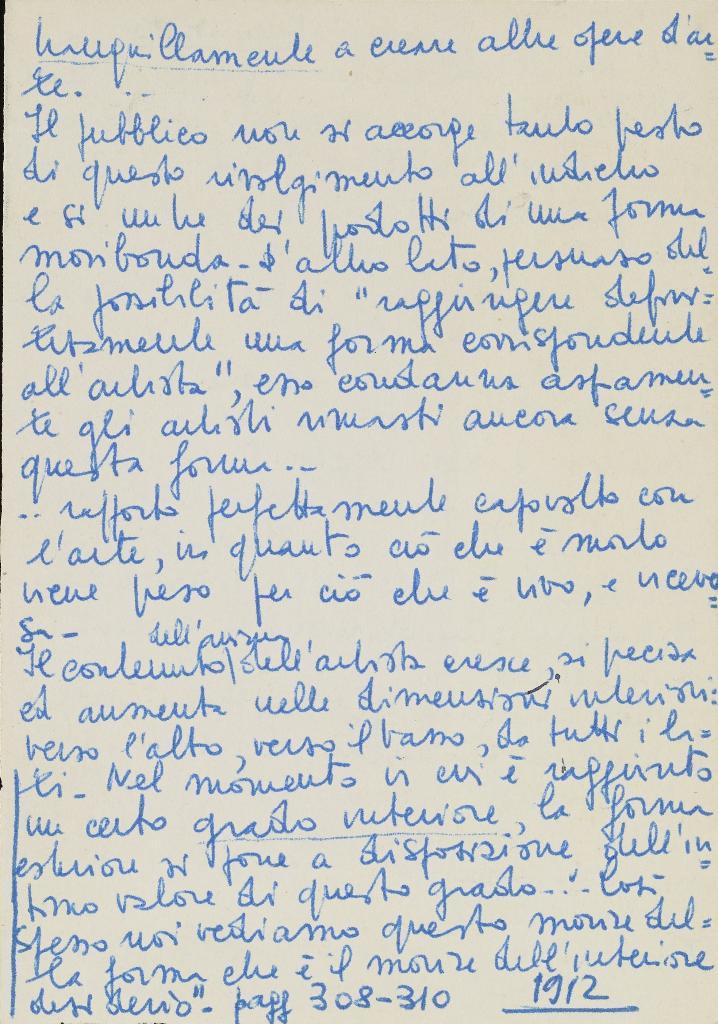 tranquillamente a creare altre opere d'ar=
te. ...
Il pubblico non si accorge tanto presto
di questo rivolgimento all'indietro
e si nutre dei prodotti di una forma
moribonda - D'altro lato, persuaso del=
la possibilità di "raggiungere defini=
tivamente una forma corrispondente
all'artista", esso condanna aspramen=
te gli artisti rimasti ancora senza
questa forma...
.. rapporto perfettamente capovolto con
l'arte, in quanto ciò che è morto
viene preso per ciò che è vivo, e viceve=
sa -
dell'anima
Il contenuto dell'artista cresce, si precisa
ed aumenta nelle dimensioni interiori:
verso l'alto, verso il basso, da tutti i la=
ti - Nel momento in cui è raggiunto
un certo grado interiore, la forma
esteriore si pone a disposizione dell'in=
timo valore di questo grado... Così
spesso noi vediamo questo morire del=
la forma che è il morire dell'interiore
desiderio" - pagg 308-310 1912